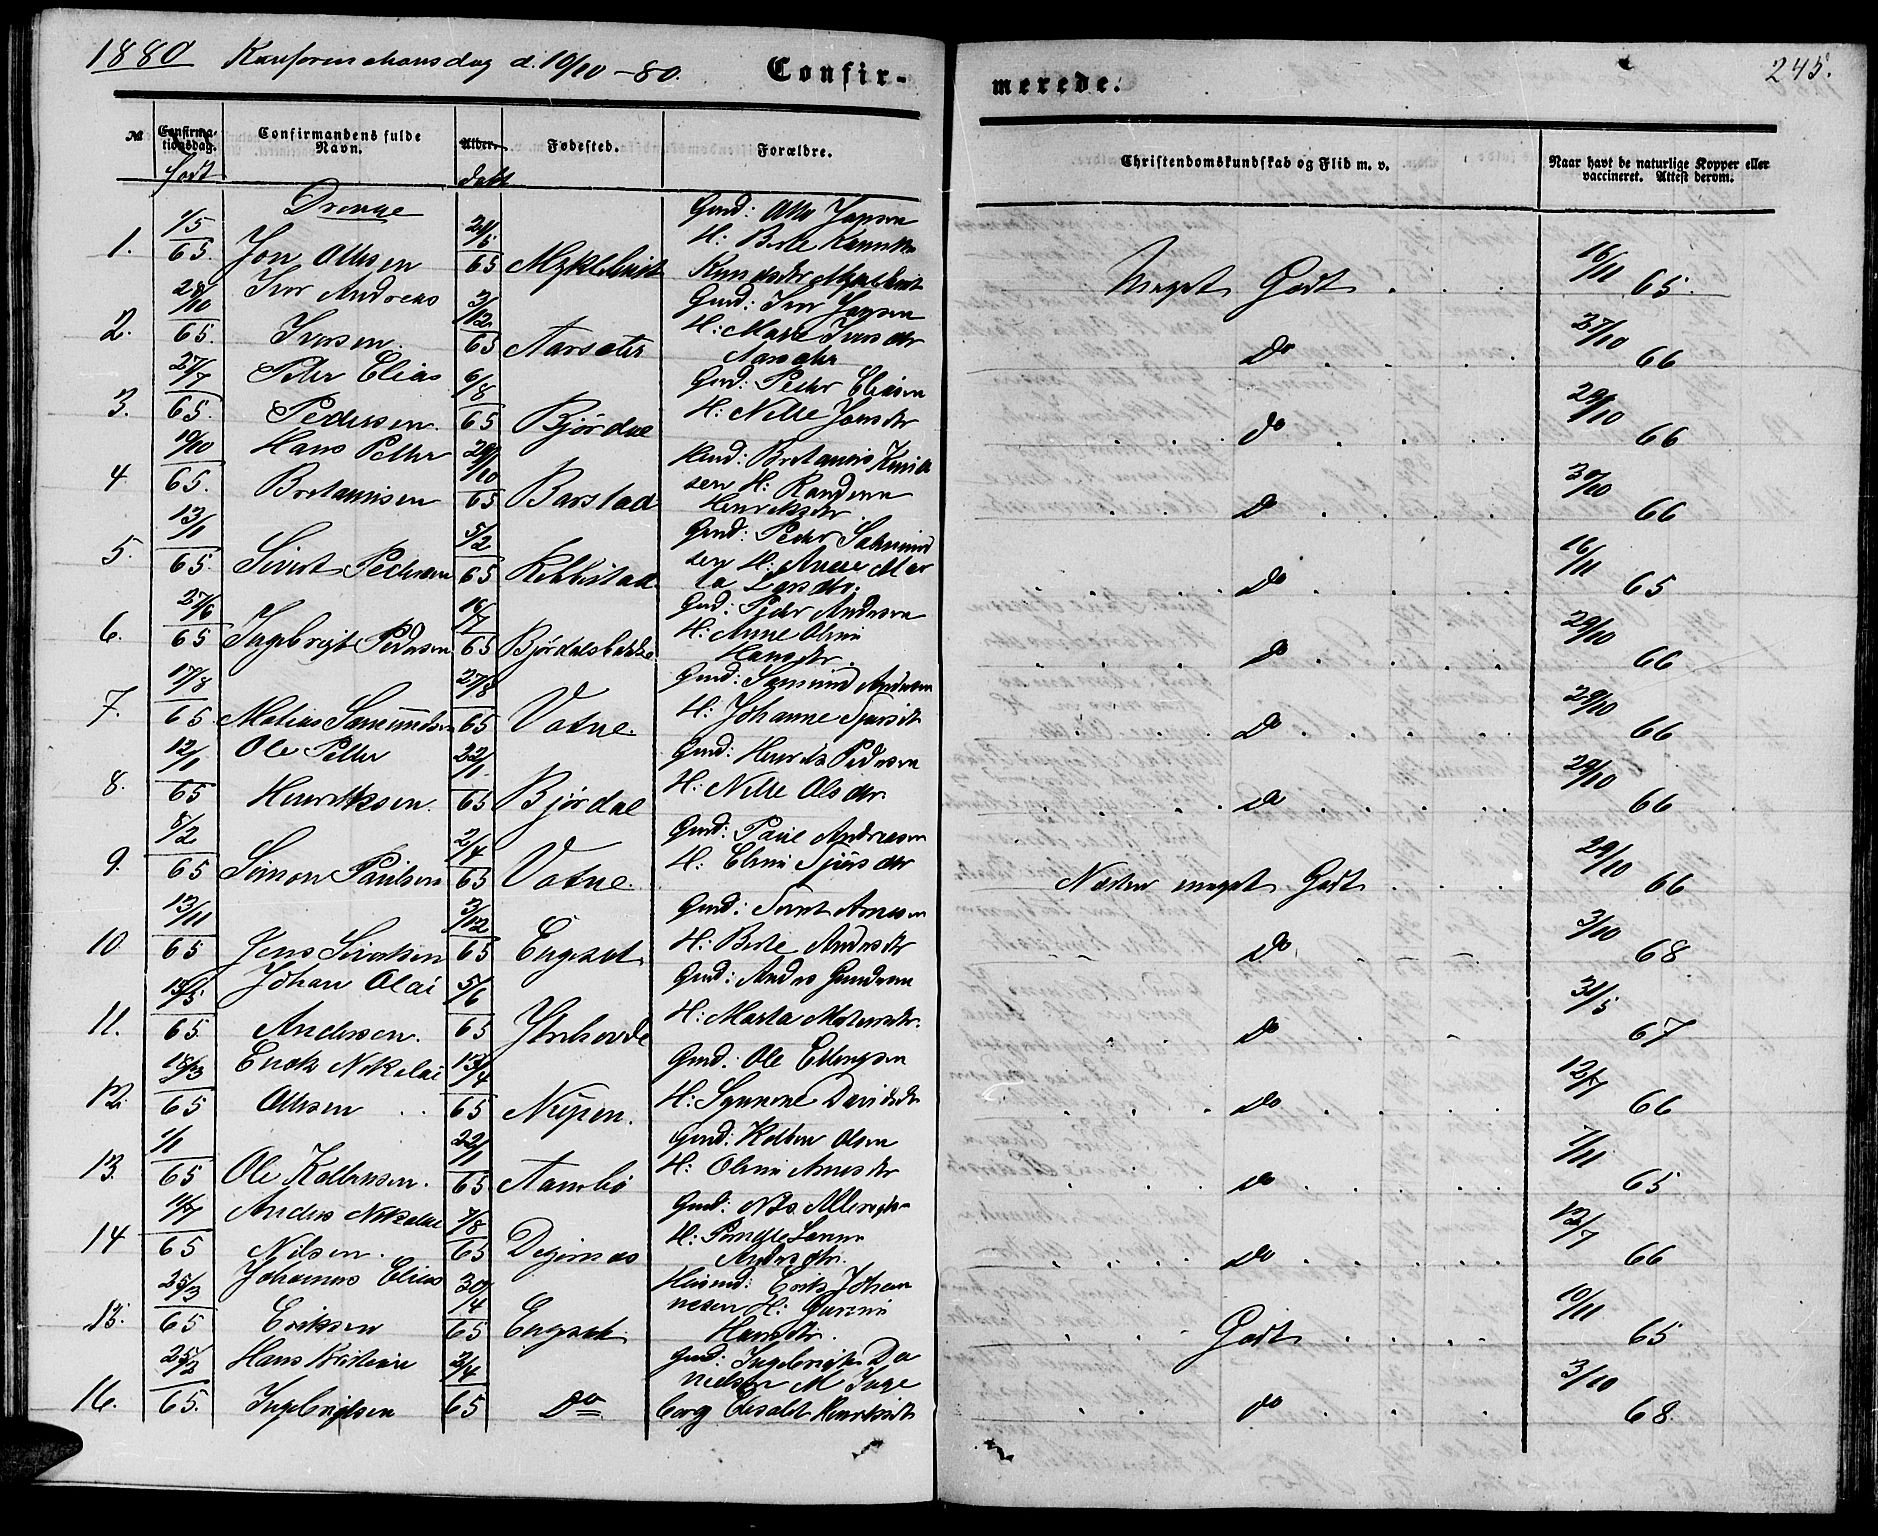 1880 Konfirmationsdag d. 10/10 - 80. Confir-
merede. 245.
No. Confirma-tionsdag. Confirmandens fulde Navn. Alder. Fødested. Forældre. Christendomskundskab og Flid m. v. Naar havt de naturlige Kopper eller vaccineret. Attest derom.
født døbt
Drenge
1. 65. Jon Ottesen 65 Myklebust Gmd: Otto Jonsen H: Berte Meget Godt 16/11 65.
2. 28/10 65. Iver Andreas Iversen. 3/12 65 Aarsæter Gmd: Iver Jonsen H: Marte Iversdtr Aarsæter Do 27/10 66
3. 27/7 65. Peter Elias Pedersen. 6/8 65 Bjørdal Gmd: Peder Eliasen H: Nille Jonsdtr do 29/10 66
4 65. Hans Petter 29/10 65 Barstad H: Randine Henriksdtr Do 30/10 66
5. 13/1 65. Sivert Pedersen 5/2 65 Gmd: Peder H: Anne Marta Larsdtr. Do 16/11 65
6. 27/6 65 Ingebrigt Pedersen 16/7 65 Bjørdalsbakke Gmd: Peder Andersen H: Anne Oline Hansdtr. do 29/10 66
7. 17/8 65. Matias Samundsen 27/8 65 Vatne. Gmd: Samund Andersen H: Johanne Sjursdtr Do 29/10 66
8. 12/1 65 Ole Petter Henriksen. 22/1 65 Bjørdal Gmd: Henrik Pedersen H: Nille Olsdtr. Do 29/10 66
9. 8/2 65 Simon Paulsen 2/4 65 Vatne. Gmd: Paul Andresen H: Eline Sjursdtr Næsten meget Godt 29/10 66
10 13/11 65 Jens Sivertsen 3/12 65 Engeset Gmd: Sivert Arnesen H: Berte Andersdtr Do 3/10 68
11. 65. Johan Olai Andersen. 5/6 65 Ytrehovde Gmd: Anders Gundersen H: Marta Do 31/5 67
12. 18/3 65 Enok Nikolai Olsen 65 Nupen. Gmd: Ole Ellingsen H: Synnøve Davidsdtr Do 12/7 66
13. 1/1 65 Ole Kolbensen. 22/1 65 Aambø Gmd: Kolben Olsen H: Oline Arnesdtr Do 7/11 65
14 65 Anders Nikolai Nilsen. 7/8 65 Digernæs Gmd: Nils H: Andersdtr. Do 12/7 66
15. 25/3 65 Johannes Elias Eriksen 30/4 65 Engeset Husmd: Erik Johannesen H: Hansdtr. Godt 10/11 65
16. 25/2 65. Hans Kristian Ingebrigtsen 2/4 65 Do Gmd: Ingebrigt Danielsen M Ingeborg do 3/10 68.